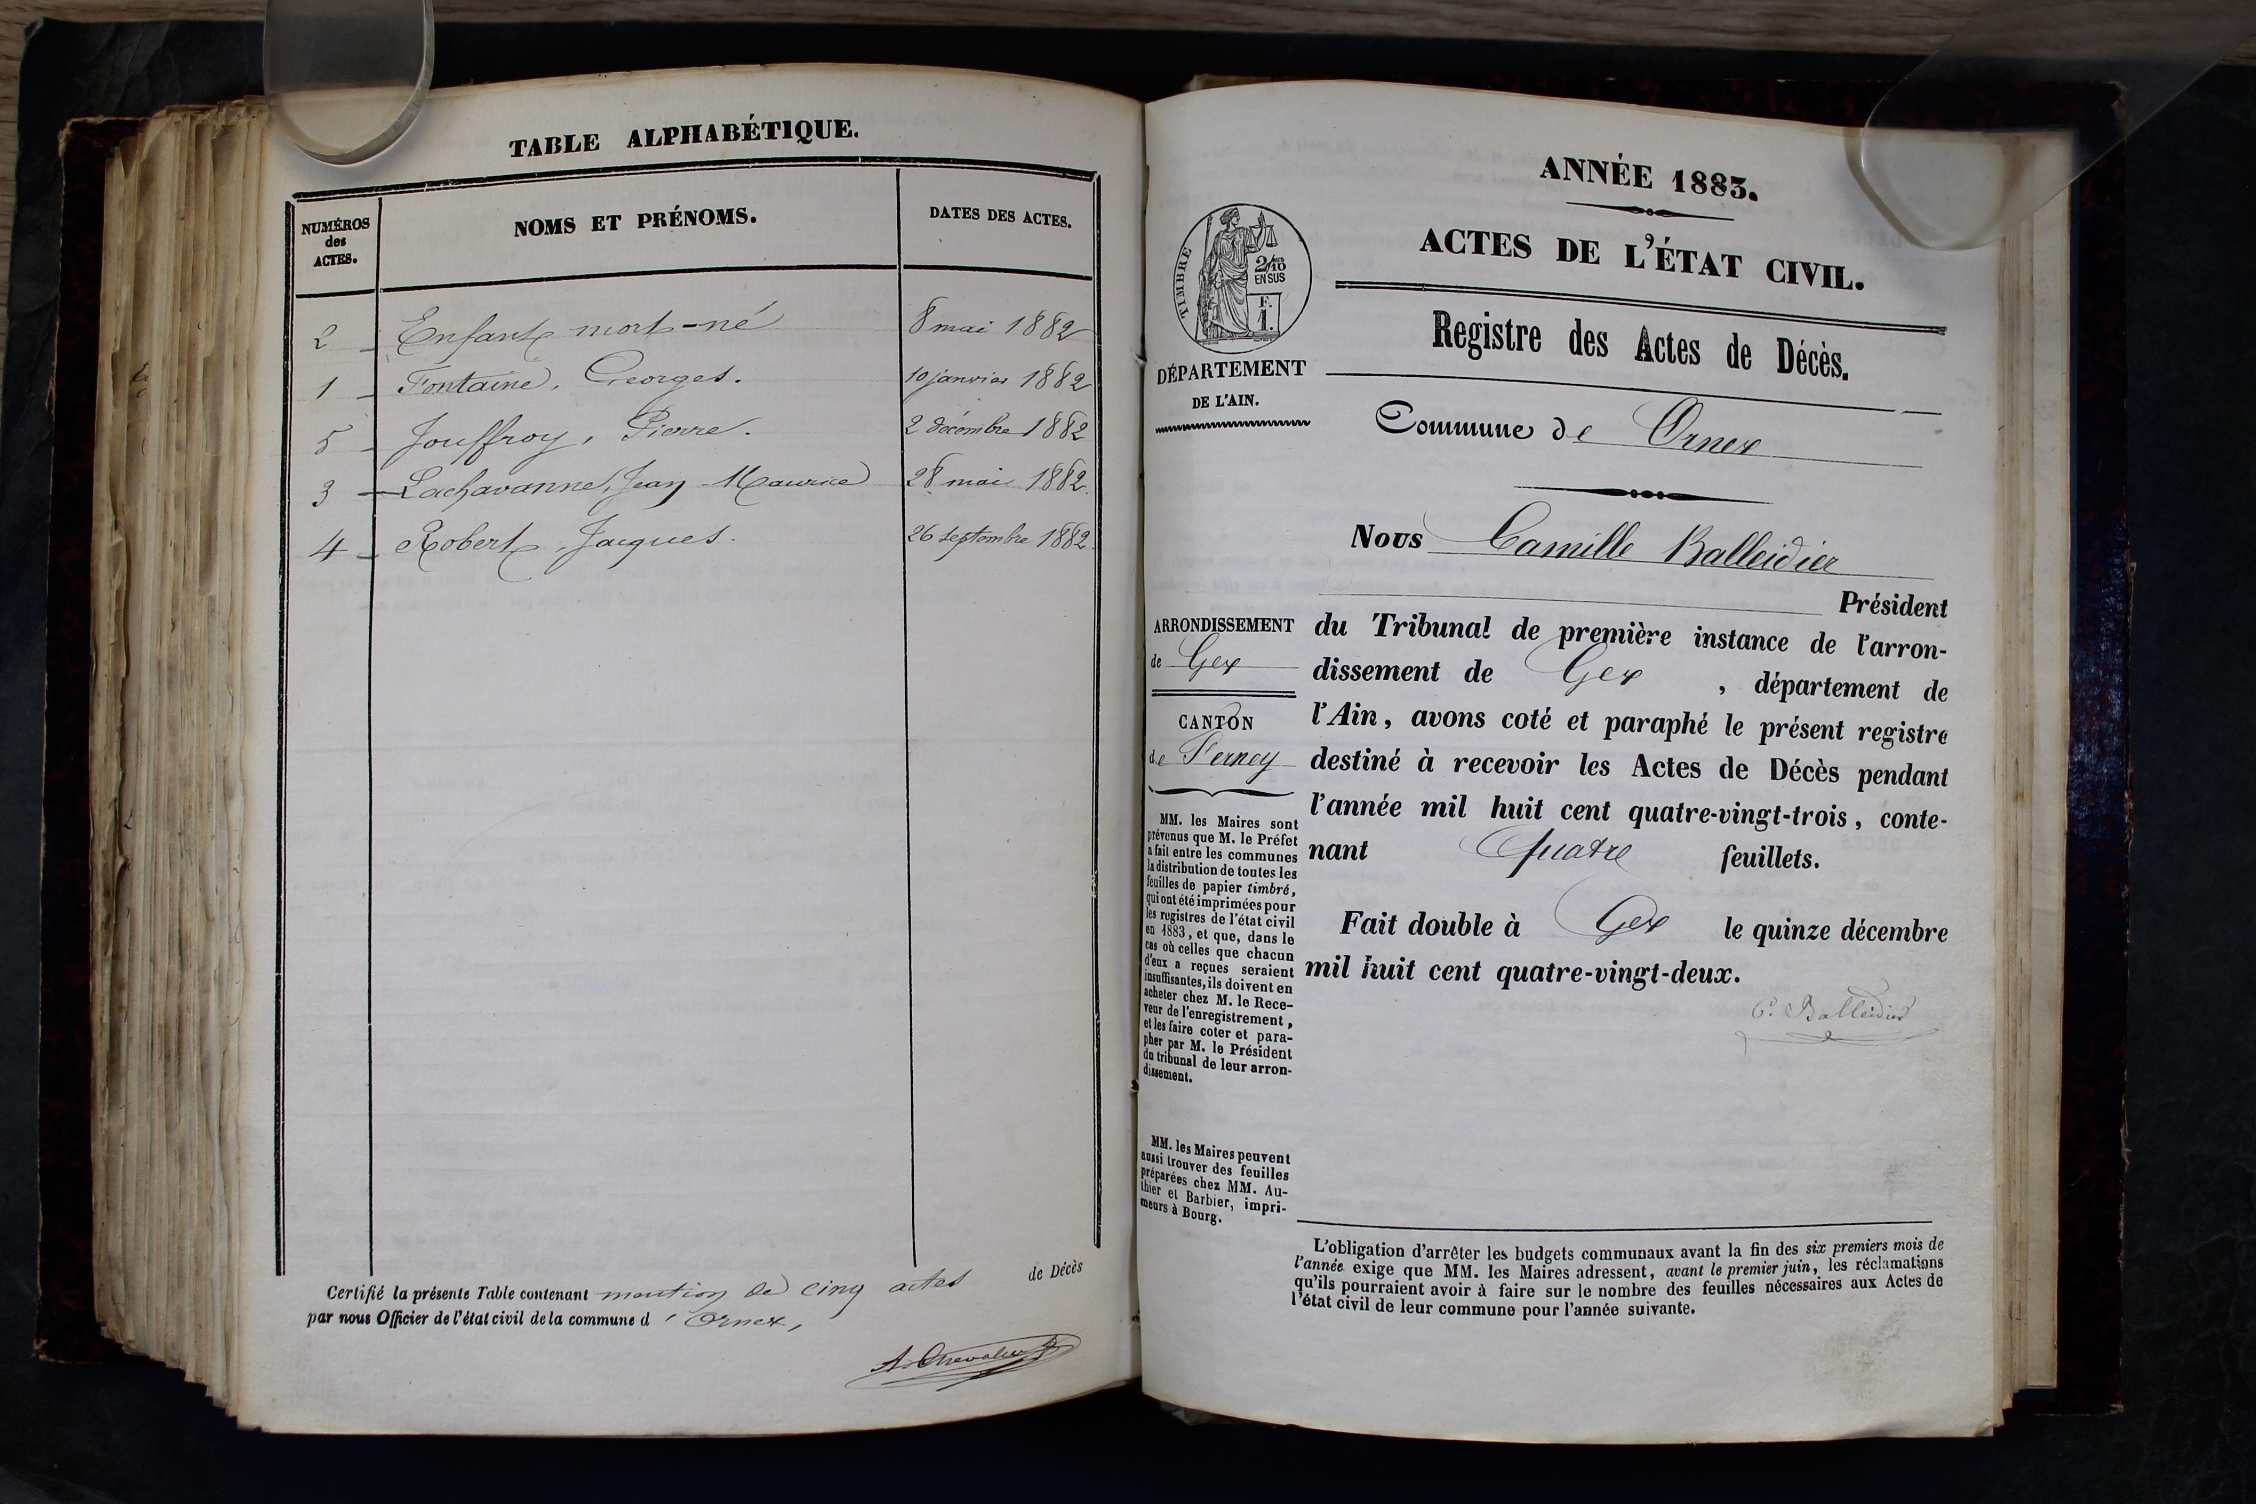 TABLE ALPHABÉTIQUE.
NUMÉROS des ACTES.
NOMS ET PRÉNOMS.
DATES DES ACTES.
2 Enfant mort-né 8 mai 1882
1 Fontaine, Georges. 10 janvier 1882
5 Jouffroy, Pierre. 2 décembre 1882
3 Lachavanne, Jean Maurice 28 mai 1882.
4 Robert, Jacques. 26 septembre 1882.
Certifié la présente Table contenant mention de cinq actes de Décès
par nous Officier de l'état civil de la commune d'Ornex,
A. Chevalier
ANNÉE 1883.
ACTES DE L'ÉTAT CIVIL.
TIMBRE
2/10 EN SUS
F.
1.
DÉPARTEMENT
DE L'AIN.
Registre des Actes de Décès.
Commune de Ornex
Nous Camille Balleidier
Président
du Tribunal de première instance de l'arron-
dissement de Gex, département de
l'Ain, avons coté et paraphé le présent registre
destiné à recevoir les Actes de Décès pendant
l'année mil huit cent quatre-vingt-trois, conte-
nant Quatre feuillets.
Fait double à Gex le quinze décembre
mil huit cent quatre-vingt-deux.
C. Balleidier
ARRONDISSEMENT
de Gex
CANTON
de Ferney
MM. les Maires sont
prévenus que M. le Préfet
a fait entre les communes
la distribution de toutes les
feuilles de papier timbré,
qui ont été imprimées pour
les registres de l'état civil
en 1883, et que, dans le
cas où celles que chacun
d'eux a reçues seraient
insuffisantes, ils doivent en
acheter chez M. le Rece-
veur de l'enregistrement,
et les faire coter et para-
pher par M. le Président
du tribunal de leur arron-
dissement.
MM. les Maires peuvent
aussi trouver des feuilles
préparées chez MM. Au-
thier et Barbier, impri-
meurs à Bourg.
L'obligation d'arrêter les budgets communaux avant la fin des six premiers mois de
l'année exige que MM. les Maires adressent, avant le premier juin, les réclamations
qu'ils pourraient avoir à faire sur le nombre des feuilles nécessaires aux Actes de
l'état civil de leur commune pour l'année suivante.